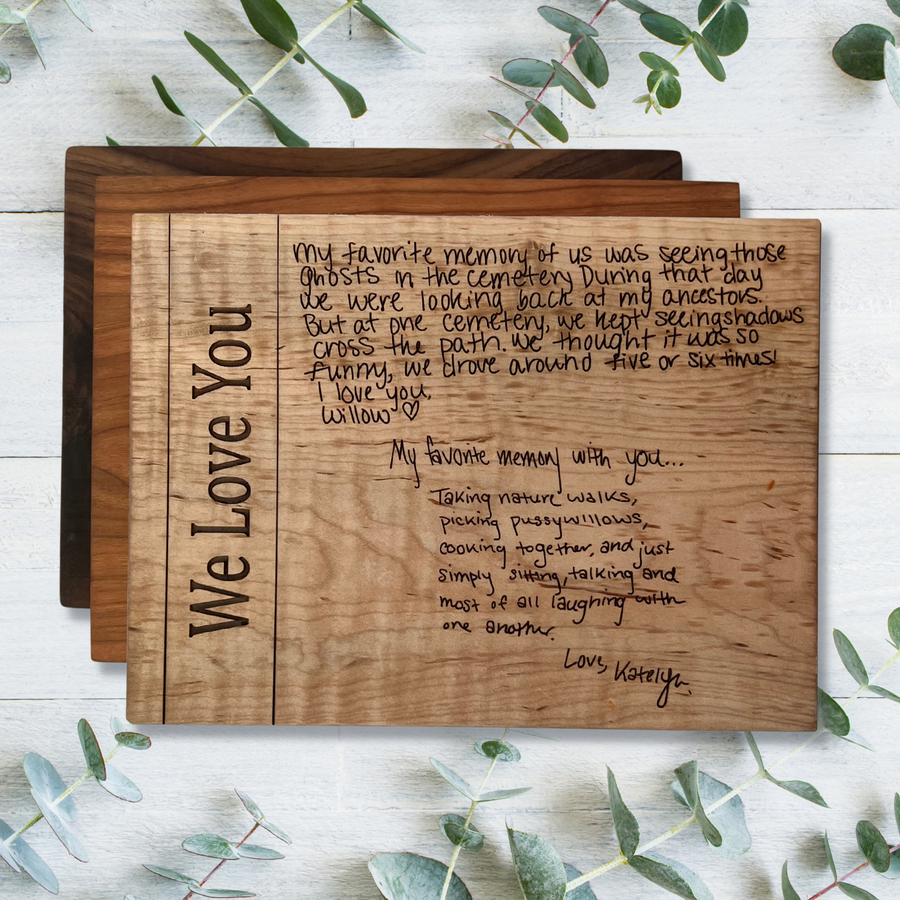 We Love You
My favorite memory of us was seeing those
ghosts in the cemetery During that day
we were looking back at my ancestors.
But at one cemetery, we kept seeing shadows
cross the path. we thought it was so
funny, we drove around five or six times!
I love you,
Willow ♡
My favorite memory with you...
Taking nature walks,
picking pussywillows,
cooking together, and just
simply sitting, talking and
most of all laughing with
one another.
Love, Katelyn